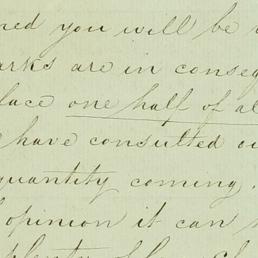 ned you will be
arks are in conseq
lace one half of al
have consulted ou
quantity coming.
opinion it can
plenty of